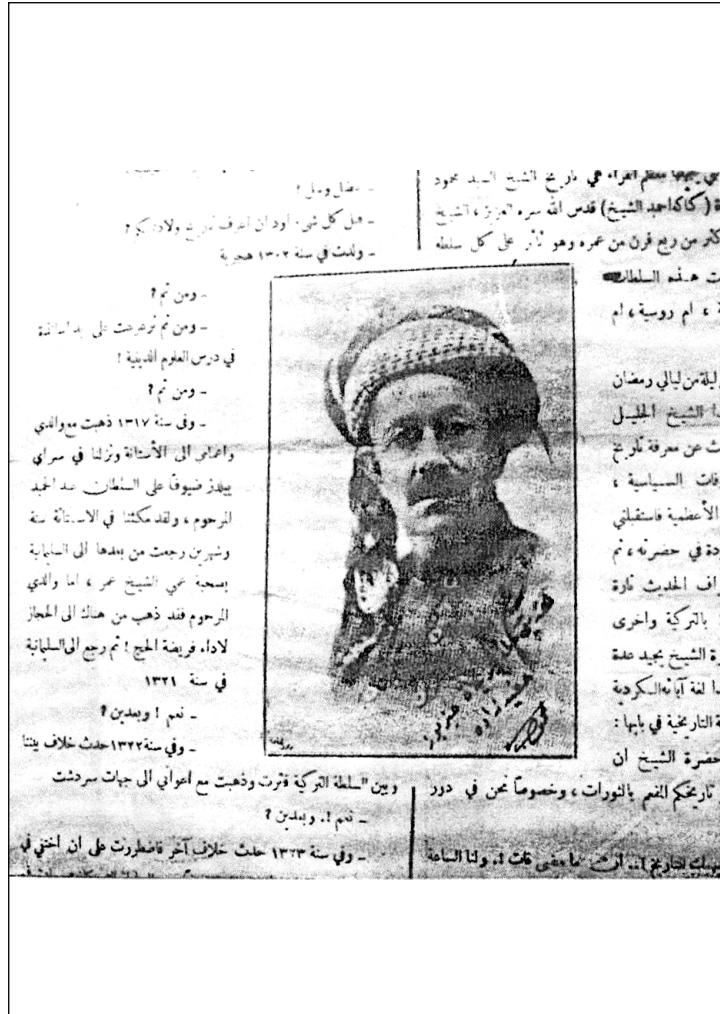 يجهلها معظم القراء هي تاريخ الشيخ السيد محمود
ة (كاكه احمد الشيخ) قدس الله سره العزيز ، الشيخ
كثر من ربع قرن من عمره وهو ثائر على كل سلطة
ت هذه السلطات
ة ، ام روسية ، ام
ليلة من ليالي رمضان
ا الشيخ الجليل
ث عن معرفة تاريخ
فات السياسية ،
الأعظمية فاستقبلني
ودة في حضرته ، ثم
اف الحديث تارة
بالتركية واخرى
ة الشيخ يجيد عدة
ا لغة آبائه الكردية
ة التاريخية في بابها :
حضرة الشيخ ان
تاريخكم المفعم بالثورات ، وخصوصاً نحن في دور
ما مضى فات !. ولنا الساعة
ـ تفضل وسل !
ـ قبل كل شيء اود ان اعرف تاريخ ولادتكم ?
ـ ولدت في سنة ١٣٠٢ هجرية
ـ ومن ثم ?
ـ ومن ثم ترعرعت على يد اساتذة
في درس العلوم الدينية !
ـ ومن ثم ?
ـ وفى سنة ١٣١٧ ذهبت مع والدي
واعمامي الى الأستانة ونزلنا في سراي
ييلدز ضيوفاً على السلطان عبد الحميد
المرحوم ، ولقد مكثنا في الاستانة سنة
وشهرين رجعت من بعدها الى السليمانية
بصحبة عمي الشيخ عمر ، اما والدي
المرحوم فقد ذهب من هناك الى الحجاز
لاداء فريضة الحج ! ثم رجع الى السليمانية
في سنة ١٣٢١
ـ نعم ! وبعدين ?
ـ وفي سنة ١٣٢٢ حدث خلاف بيننا
وبين السلطة التركية فثرت وذهبت مع اعواني الى جهات سردشت
ـ نعم !. وبعدين ?
ـ وفي سنة ١٣٢٣ حدث خلاف آخر فاضطررت على ان اختفي في